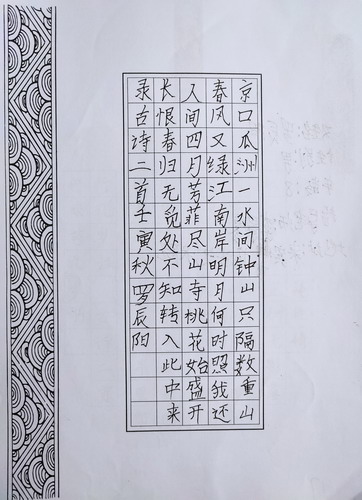 京口瓜洲一水间钟山只隔数重山
春风又绿江南岸明月何时照我还
人间四月芳菲尽山寺桃花始盛开
长恨春归无觅处不知转入此中来
录古诗二首壬寅秋罗辰阳